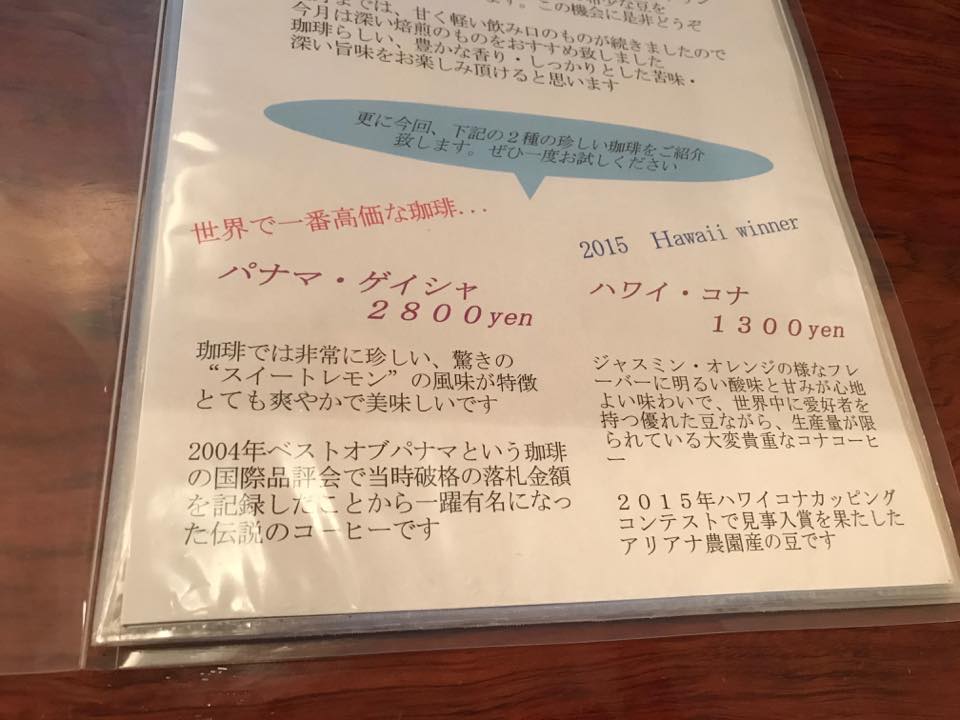 希少な豆を
この機会に是非どうぞ
までは、甘く軽い飲み口のものが続きましたので
今月は深い焙煎のものをおすすめ致しました
珈琲らしい、豊かな香り・しっかりとした苦味・
深い旨味をお楽しみ頂けると思います
更に今回、下記の2種の珍しい珈琲をご紹介
致します。ぜひ一度お試しください
世界で一番高価な珈琲...
パナマ・ゲイシャ
２８００yen
珈琲では非常に珍しい、驚きの
“スイートレモン”の風味が特徴
とても爽やかで美味しいです
2004年ベストオブパナマという珈琲
の国際品評会で当時破格の落札金額
を記録したことから一躍有名になっ
た伝説のコーヒーです
2015 Hawaii winner
ハワイ・コナ
１３００yen
ジャスミン・オレンジの様なフレ
ーバーに明るい酸味と甘みが心地
よい味わいで、世界中に愛好者を
持つ優れた豆ながら、生産量が限
られている大変貴重なコナコーヒ
ー
２０１５年ハワイコナカッピング
コンテストで見事入賞を果たした
アリアナ農園産の豆です